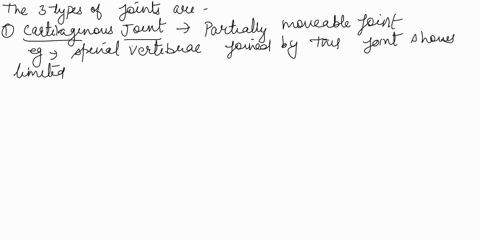 The 3 types of Joints are -
① Cartilagenous Joint → Partially moveable Joint
eg → spinal vertebrae joined by this Joint shows
limited